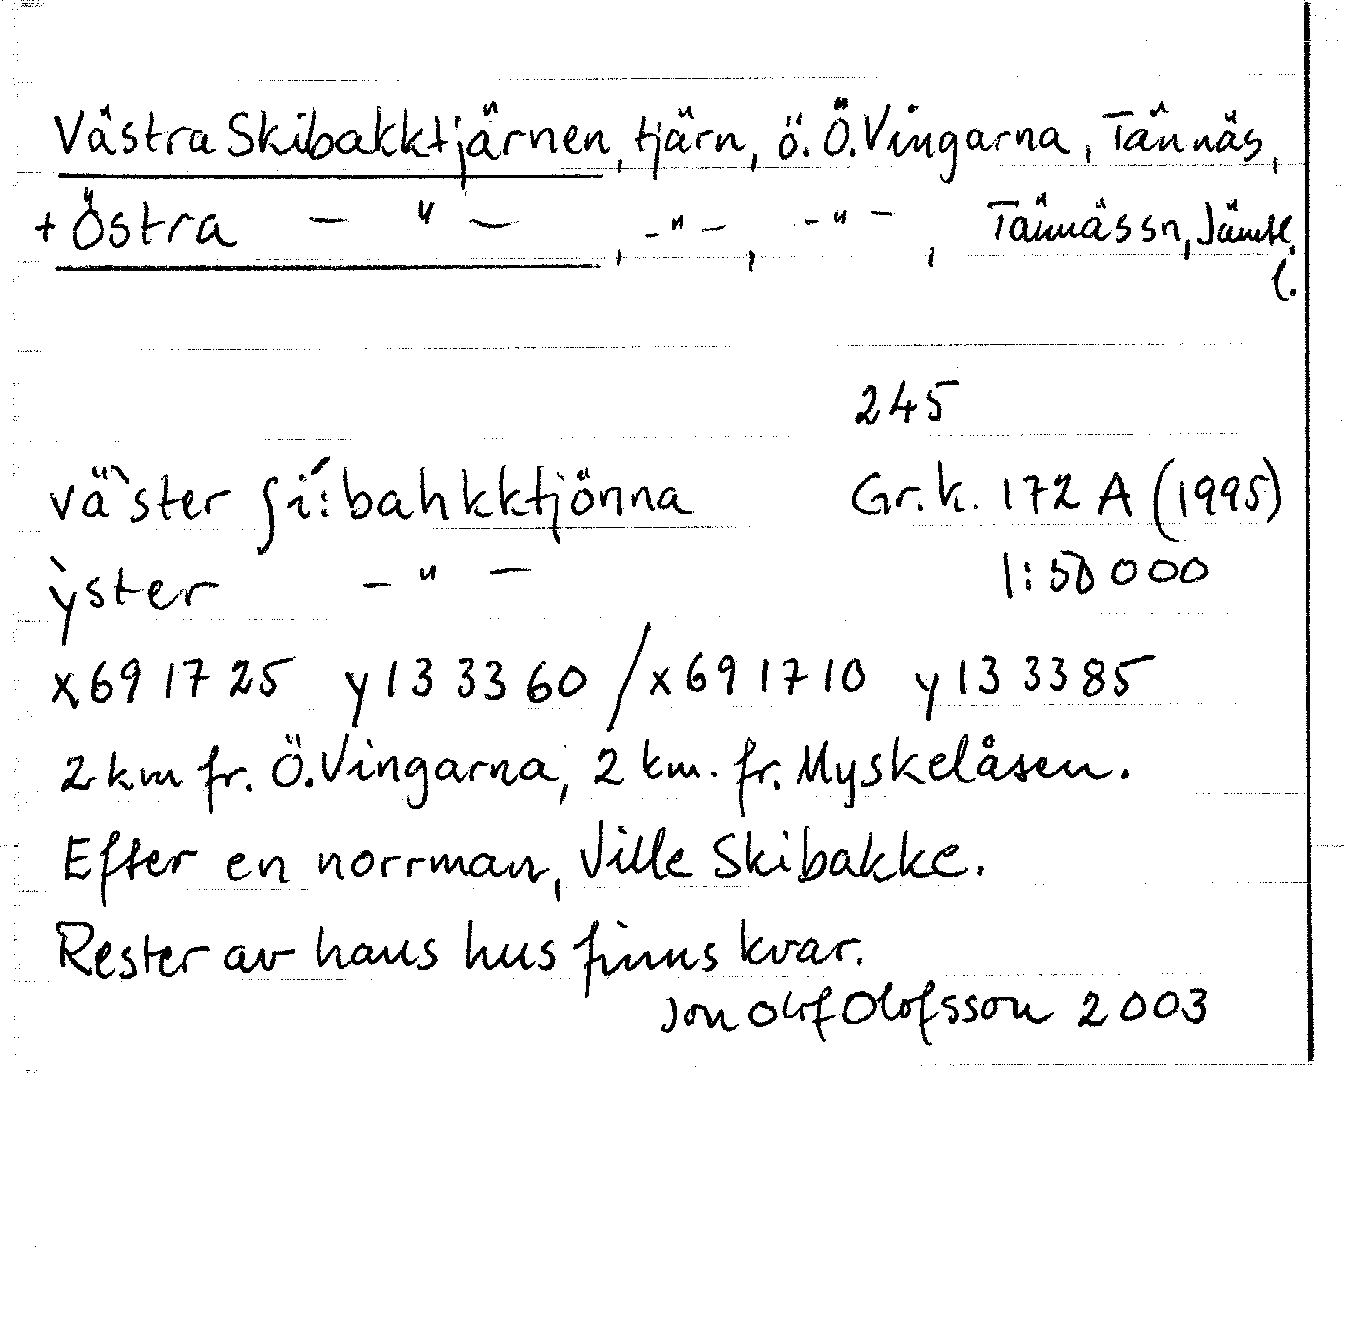 Västra Skibakktjärnen, tjärn, ö. Ö. Vingarna, Tännäs,
+ Östra — " —, - " -, - " -, Tännässn, Jämtl.
l.
245
väˋster ʃíːbahkktjönna Gr.k. 172 A (1995)
ỳster — " — 1:50 000
x69 17 25 y 13 33 60 / x69 17 10 y 13 33 85
2 km fr. Ö. Vingarna, 2 km. fr. Myskelåsen.
Efter en norrman, Ville Skibakke.
Rester av hans hus finns kvar.
Jon Olof Olofsson 2003